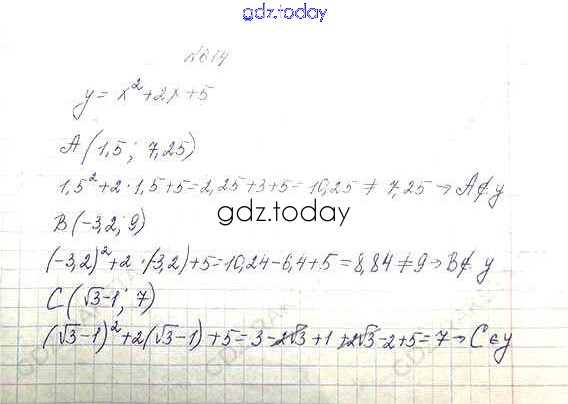 gdz.today
y = x² + 2x + 5
A (1,5 ; 7,25)
1,5² + 2 · 1,5 + 5 = 2,25 + 3 + 5 = 10,25 ≠ 7,25 → A ∉ y
B (-3,2 ; 9)
gdz.today
(-3,2)² + 2 · (-3,2) + 5 = 10,24 - 6,4 + 5 = 8,84 ≠ 9 → B ∉ y
C (√3-1 ; 7)
(√3-1)² + 2(√3-1) + 5 = 3 - 2√3 + 1 + 2√3 - 2 + 5 = 7 → C ∈ y